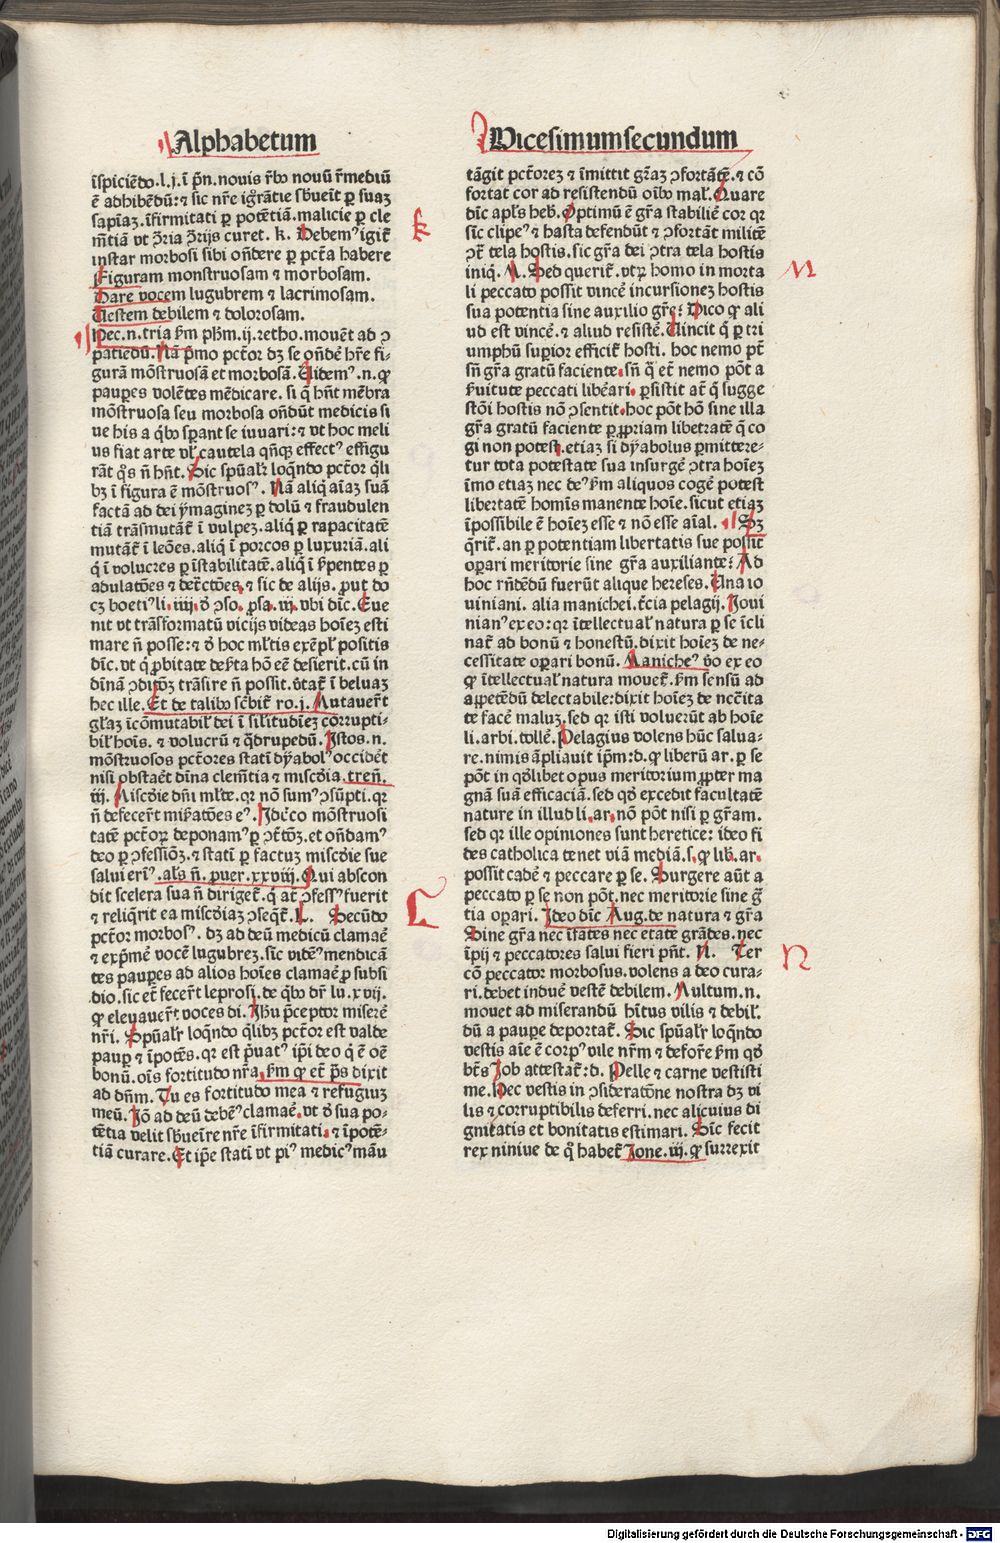 Alphabetum
īspiciēdo.l.j.ī p̄n.nouis r̄bo nouū r̄mediū
ē adhibēdū:⁊ sic nr̄e igr̄ātie sb̄ueīt ꝑ suaꝫ
sapīaꝫ.īfirmitati ꝑ potētiā.malicie ꝑ cle
m̄tiā vt ꝯ̄ria ꝯ̄rijs curet. k. Debemꝰ igit̄
instar morbosi sibi on̄dere ꝑ pctā habere
Figuram monstruosam ⁊ morbosam.
Dare vocem lugubrem ⁊ lacrimosam.
Uestem debilem ⁊ dolorosam.
Hec.n.tria ẜm ph̄m.ij.retho.mouēt ad ꝯ
patiēdū.Nā p̄mo pctōr dꝫ se on̄dē hr̄e fi-
gurā mōstruosā et morbosā.Uidemꝰ.n.ꝙ
pauꝑes volētes mēdicare.si q̇ hn̄t mēbra
mōstruosa seu morbosa on̄dūt medicis si
ue his a q̇bo sꝑant se iuuari:⁊ vt hoc meli
us fiat arte vl̄ cautela qn̄qꝫ effectꝰ effigu
rāt q̇s n̄ hn̄t.Sic spūal̄r loqn̄do pctōr q̇li
bꝫ ī figura ē mōstruosꝰ.Nā aliq̇ aīaꝫ suā
factā ad dei ymagineꝫ ꝑ dolū ⁊ fraudulen
tiā trāsmutāt̄ ī vulpeꝫ.aliq̇ ꝑ rapacitatē
mutāt̄ ī leōes.aliq̇ ī porcos ꝑ luxuriā.ali
q̇ ī volucres ꝑ īstabilitatē.aliq̇ ī ẜpentes ꝑ
adulatōes ⁊ detc̄tōes.⁊ sic de alijs.ꝓut do
cꝫ boetiꝰ li.iiij.ð ꝯso.ꝓsa.iij.vbi dīc.Eue
nit vt trāsformatū vicijs videas hoīeꝫ esti
mare n̄ posse:⁊ ð hoc ml̄tis exēpl̄ positis
dīc.vt q̇ ꝓbitate deẜta hō eē desierit.cū in
dīnā ꝯditōꝫ trāsire n̄ possit.v̄tat̄ ī beluaꝫ
hec ille.Et de talibo scb̄it̄ ro.j.Mutauer̄t
gl̄aꝫ icōmutabil̄ dei ī sil̄itudīeꝫ corrupti-
bil̄ hoīs.⁊ volucrū ⁊ q̄drupedū.Istos.n.
mōstruosos pctōres statī dyabolꝰ occidēt
nisi obstaēt dīna clem̄tia ⁊ miscðia.tren̄.
iij.Miscðie dn̄i ml̄te.qr nō sumꝰ ꝯsūpti.qr
n̄ defecer̄t miẜatōes eꝰ.Idc̄co mōstruosi
tatē pctōꝝ deponamꝰ ꝑ ꝯt̄tōꝫ.et on̄damꝰ
deo ꝑ ꝯfessiōꝫ.⁊ statī ꝑ factuꝫ miscðie sue
salui erīꝰ.als n̄.ꝓuer.xxviij.Qui abscon
dit scelera sua n̄ diriget̄.q̇ at̄ ꝯfessꝰ fuerit
⁊ reliq̄rit ea miscðiaꝫ ꝯseqt̄.L. Secūdo
pctōr morbosꝰ.dꝫ ad deū medicū clamaē
⁊ exp̄mē vocē lugubreꝫ.sic vidēꝰ mendicā
tes pauꝑes ad alios hoīes clamaē ꝓ subsi
dio.sic et̄ fecer̄t leprosi.de q̇bo dr̄ lu.xvij.
ꝙ eleuauer̄t voces di.Ihū p̄ceptor miserē
nr̄i. Spūal̄r loqn̄do q̇libꝫ pctōr est valde
pauꝑ ⁊ īpotēs.qr est p̄uatꝰ ip̄i deo q̇ ē oē
bonū.oīs fortitudo nr̄a.ẜm ꝙ et̄ p̄s dixit
ad dn̄m.Tu es fortitudo mea ⁊ refugiuꝫ
meū.Iō ad deū debēꝰ clamaē.vt ð sua po-
tētia velit sb̄ueīre nr̄e īfirmitati.⁊ īpotē-
tiā curare.Et ip̄e statī vt piꝰ medicꝰ manū
k
L
Vicesimumsecundum
tāgit pct̄oreꝫ ⁊ īmittit gr̄aꝫ ꝯfortātē.⁊ cō
fortat cor ad resistendū oībo mal̄.Quare
dīc apl̄s heb̄.Optimū ē gr̄a stabiliē cor qr
sīc clipeꝰ ⁊ hasta defendūt ⁊ ꝯfortāt militē
ꝯt̄ tela hostis.sic gr̄a dei ꝯtra tela hostis
iniq̇.M.Sed querit̄.vtꝝ homo in morta
li peccato possit vincē incursioneꝫ hostis
sua potentia sine auxilio gr̄e:Dico ꝙ ali
ud est vincē.⁊ aliud resistē.Uincit q̇ ꝑ tri
umphū suꝑior efficit̄ hosti.hoc nemo pt̄
sn̄ gr̄a gratū faciente.sn̄ q̄ et̄ nemo pōt a
ẜuitute peccati libēari.ꝑsistit at̄ q̇ sugge
stōi hostis nō ꝯsentit.hoc pōt hō sine illa
gr̄a gratū faciente ꝑ ꝓpriam libertatē q̇ co
gi non potest.etiaꝫ si dyabolus ꝑmittere-
tur tota potestate sua insurgē ꝯtra hoīeꝫ
īmo etiaꝫ nec deꝰ ẜm aliquos cogē potest
libertatē homīs manente hoīe.sicut etiaꝫ
īpossibile ē hoīeꝫ esse ⁊ nō esse aīal.Sꝫ
q̄rit̄.an ꝑ potentiam libertatis sue possit
oꝑari meritorie sine gr̄a auxiliante:Ad
hoc rn̄dēdū fuerūt alique hereses.Una io
uiniani.alia manichei.t̄cia pelagij.Ioui
nianꝰ ex eo:qr ītellectual̄ natura ꝑ se īcli
nat̄ ad bonū ⁊ honestū.dixit hoīeꝫ de ne-
cessitate oꝑari bonū.Manicheꝰ v̄o ex eo
ꝙ ītellectual̄ natura mouet̄.ẜm sensū ad
appetēdū delectabile:dixit hoīeꝫ de necc̄ita
te facē maluꝫ.sed qr isti voluerūt ab hoīe
li.arbi.tollē.Pelagius volens hūc salua-
re.nimis āpliauit ip̄m:d.ꝙ liberū ar.ꝑ se
pōt in qōlibet opus meritorium ꝓpter ma
gnā suā efficaciā.sed qð excedit facultatē
nature in illud li.ar.nō pōt nisi ꝑ gr̄am.
sed qr ille opiniones sunt heretice:ideo fi
des catholica tenet viā mediā.s.ꝙ lib̄.ar.
possit cadē ⁊ peccare ꝑ se.Surgere aūt a
peccato ꝑ se non pōt.nec meritorie sine gr̄
tia oꝑari.Ideo dīc Aug.de natura ⁊ gr̄a
Sine gr̄a nec īfātes nec etate grādes.nec
īpij ⁊ peccatores salui fieri pn̄t. N. Ter
cō peccator morbosus.volens a deo cura-
ri.debet induē vestē debilem.Multum.n.
mouet ad miserandū hītus vilis ⁊ debil̄.
dū a pauꝑe deportat̄.Sic spūal̄r loqn̄do
vestis aīe ē corpꝰ vile nr̄m ⁊ defor̄e ẜm qð
bt̄s Job attestat̄:d.Pelle ⁊ carne vestisti
me.Hec vestis in ꝯsideratōne nostra dꝫ vi
lis ⁊ corruptibilis deferri.nec alicuius di
gnitatis et bonitatis estimari.Sic fecit
rex niniue de q̇ habet̄ Jone.iij.ꝙ surrexit
M
N
Digitalisierung gefördert durch die Deutsche Forschungsgemeinschaft - DFG